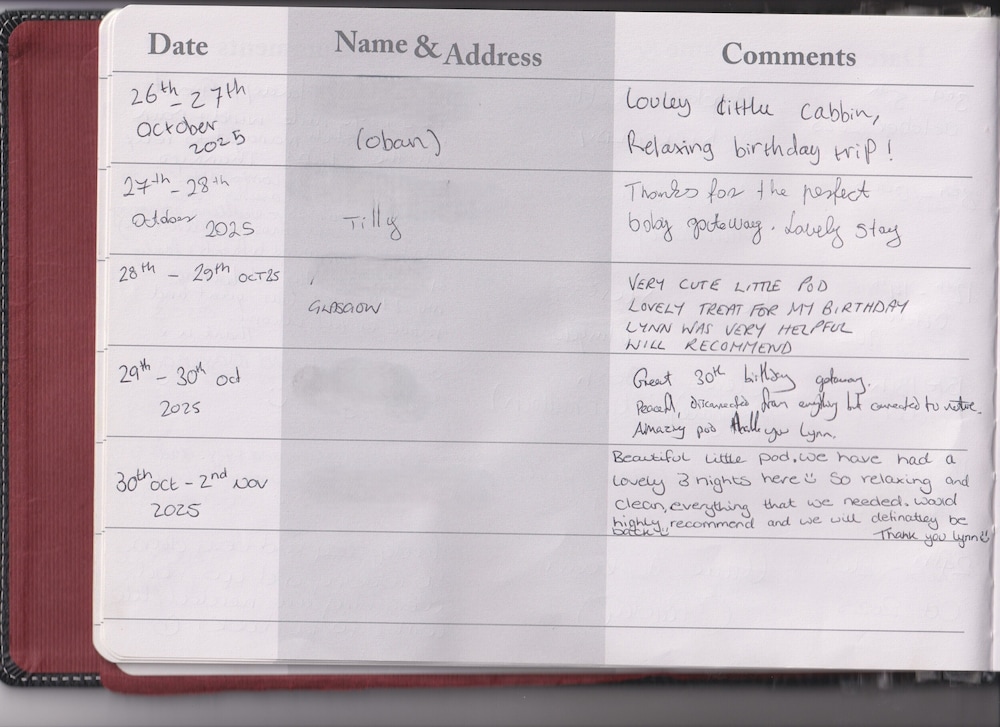 Date Name & Address Comments
26th - 27th
October
2025
(oban)
Lovley little cabbin,
Relaxing birthday trip!
27th - 28th
October 2025
Tilly
Thanks for the perfect
baby gateway. Lovely stay
28th - 29th OCT 25
GLASGOW
VERY CUTE LITTLE POD
LOVELY TREAT FOR MY BIRTHDAY
LYNN WAS VERY HELPFUL
WILL RECOMMEND
29th - 30th oct
2025
Great 30th birthday getaway.
Peaceful, disconnected from everything but connected to nature.
Amazing pod thank you Lynn.
30th oct - 2nd Nov
2025
Beautiful little pod. we have had a
lovely 3 nights here So relaxing and
clean, everything that we needed. would
highly recommend and we will definatley be
back
Thank you Lynn